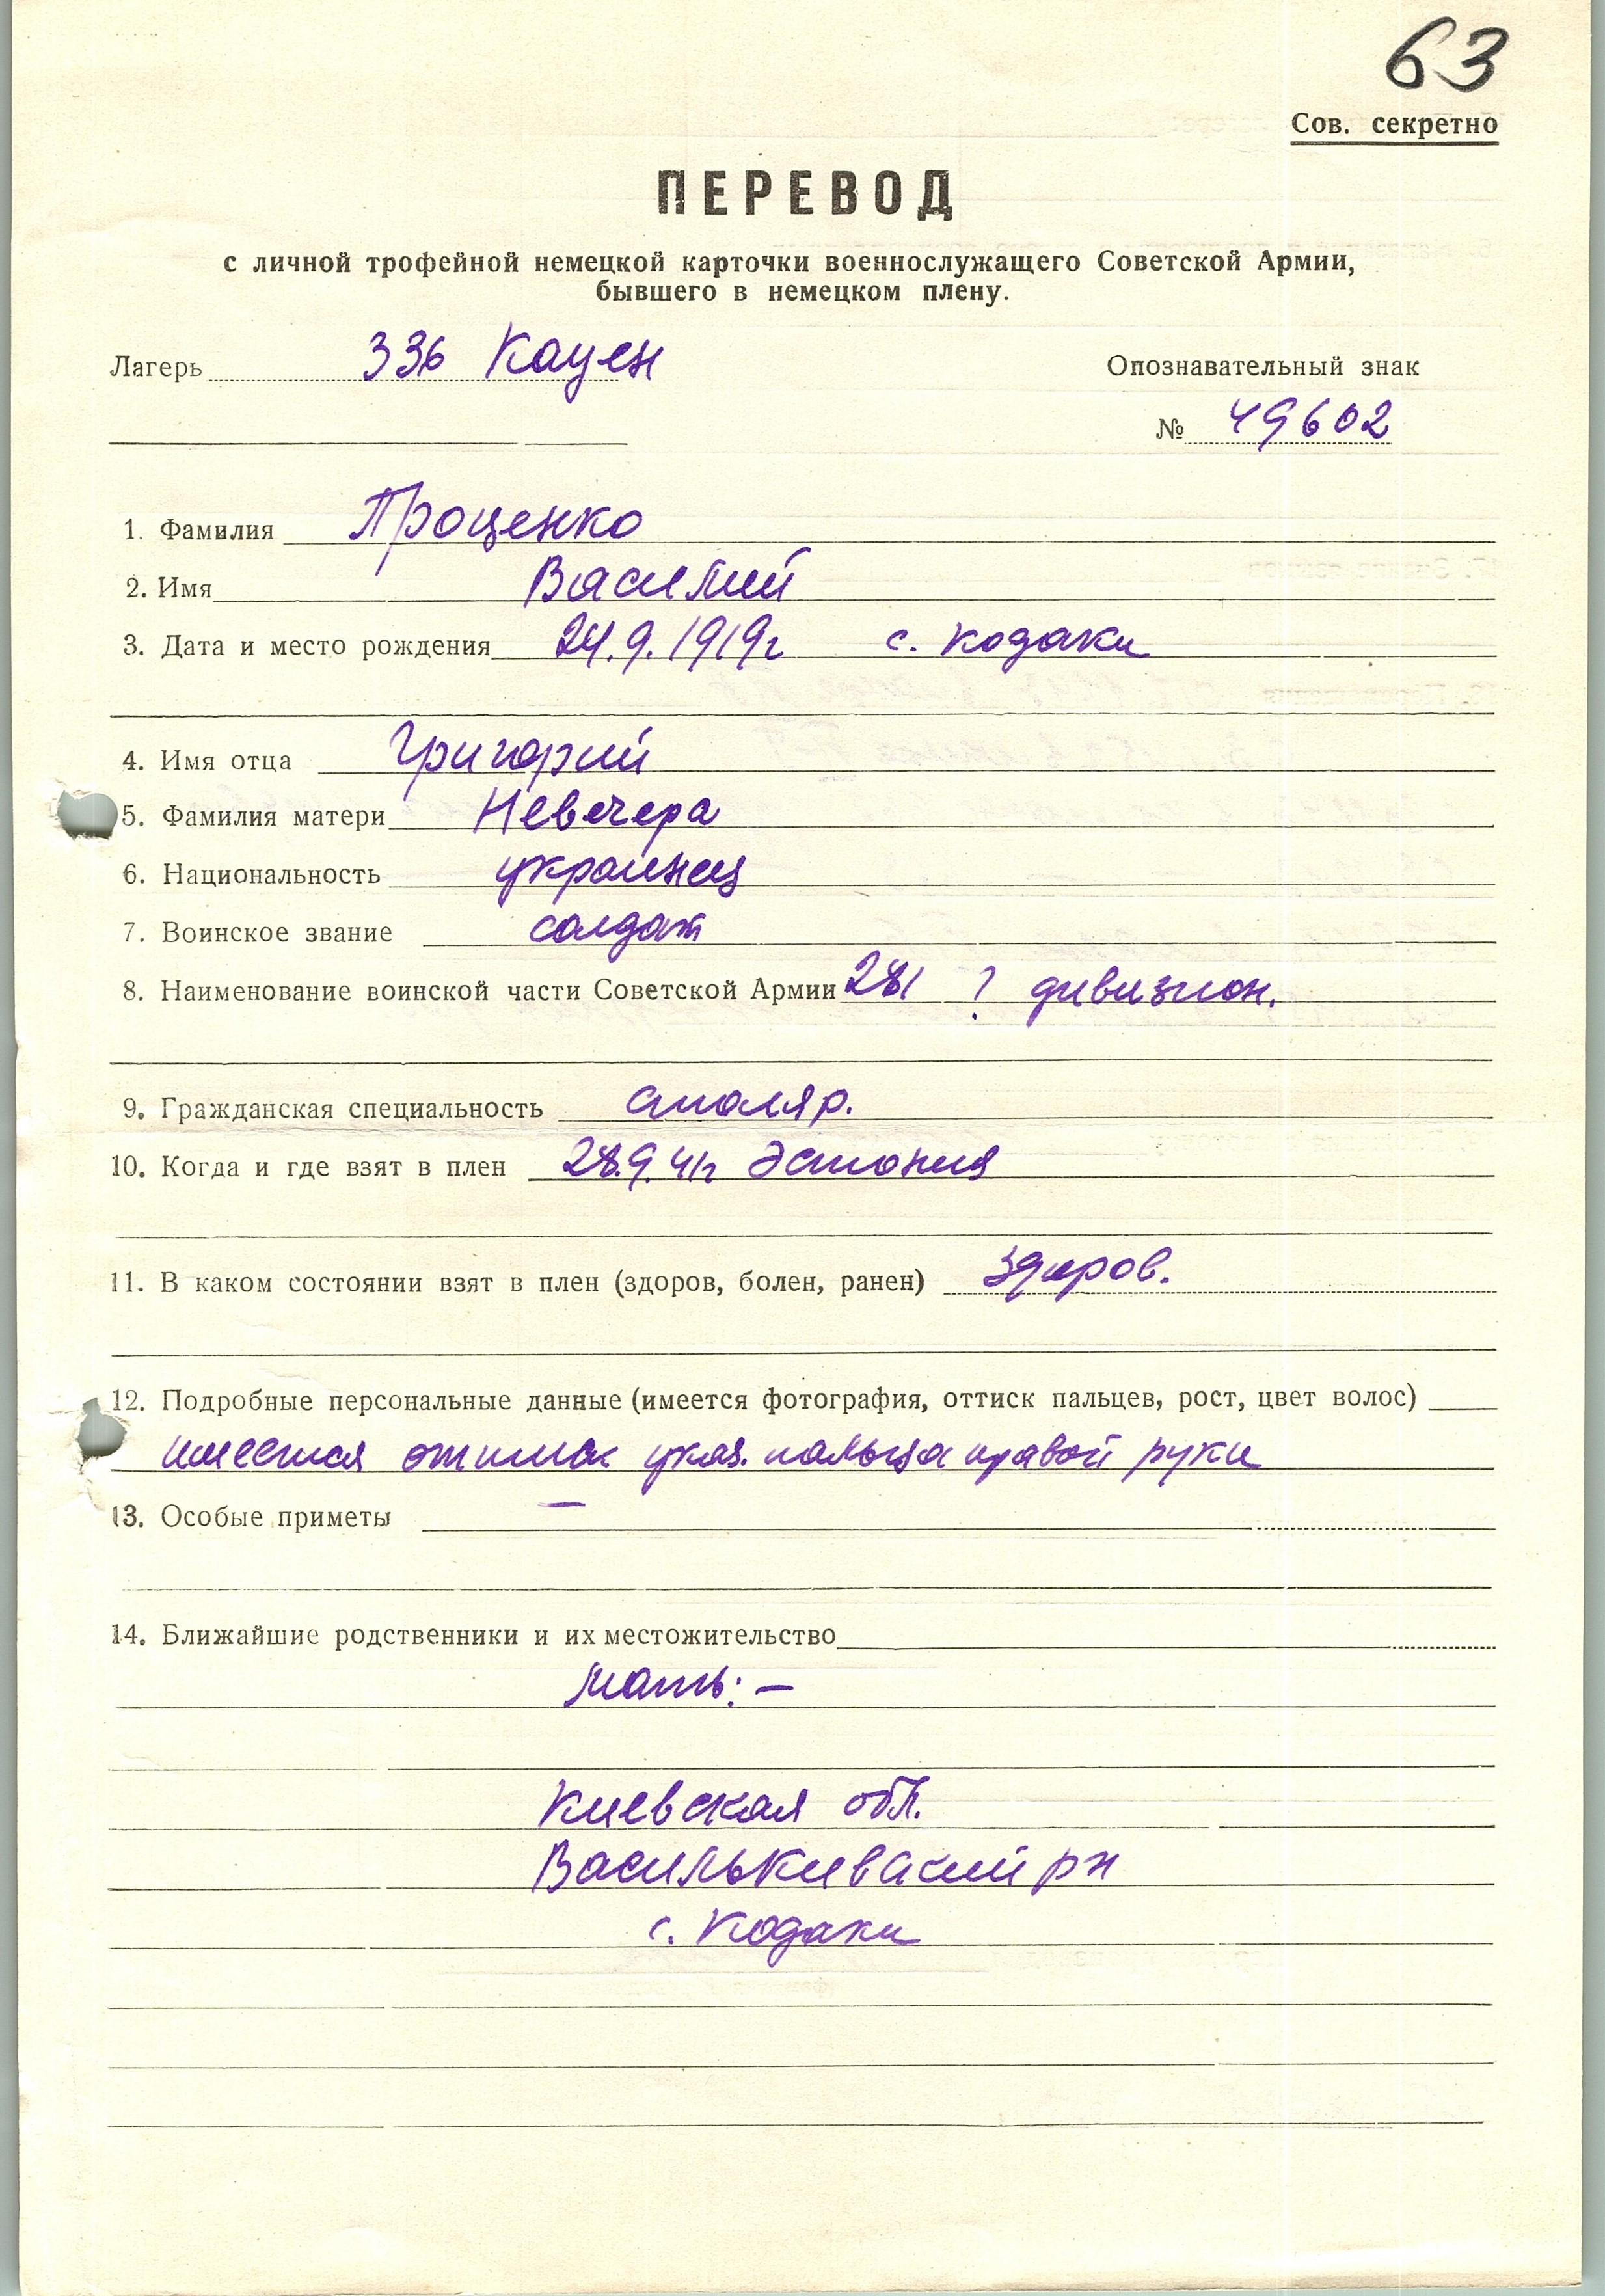 63
Сов. секретно
ПЕРЕВОД
с личной трофейной немецкой карточки военнослужащего Советской Армии,
бывшего в немецком плену.
Лагерь 336 Кауен
Опознавательный знак
№ 49602
1. Фамилия Проценко
2. Имя Василий
3. Дата и место рождения 24.9.1919г с. Кодаки
4. Имя отца Григорий
5. Фамилия матери Невечера
6. Национальность украинец
7. Воинское звание солдат
8. Наименование воинской части Советской Армии 281 ? дивизион.
9. Гражданская специальность столяр.
10. Когда и где взят в плен 28.9.41г Эстония
11. В каком состоянии взят в плен (здоров, болен, ранен) здоров.
12. Подробные персональные данные (имеется фотография, оттиск пальцев, рост, цвет волос)
имеется оттиск указ. пальца правой руки
13. Особые приметы —
14. Ближайшие родственники и их местожительство
Мать: —
Киевская обл.
Василькивский рн
с. Кодаки